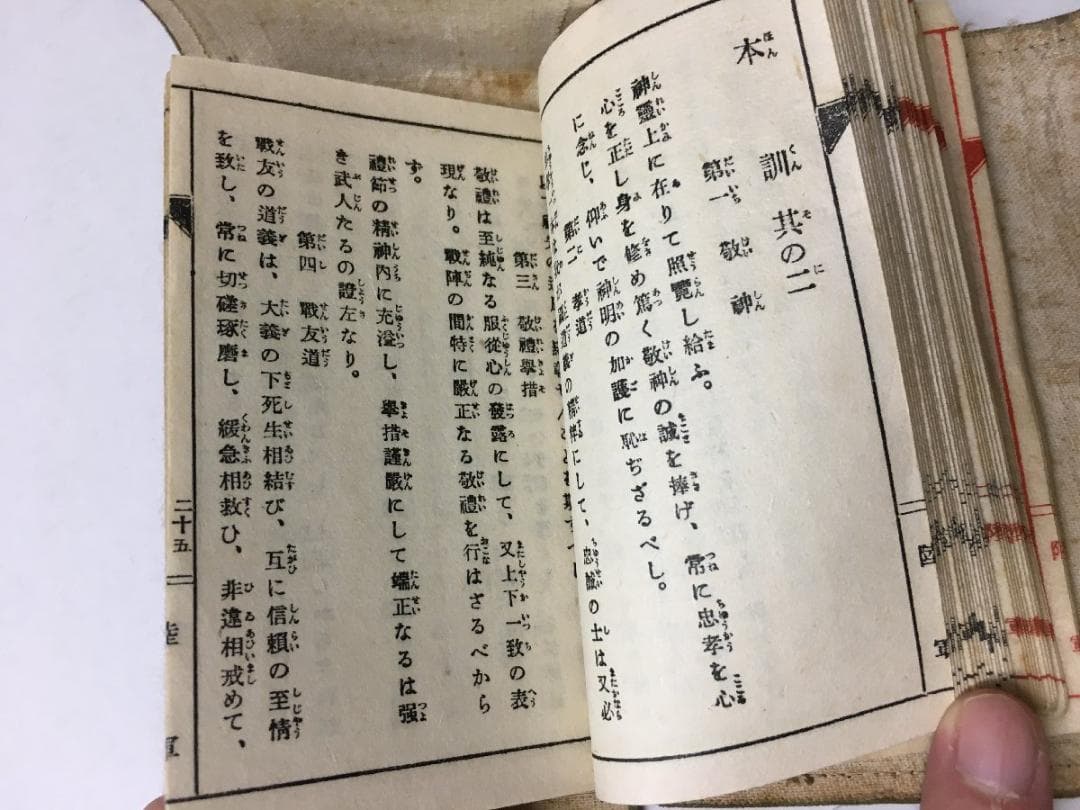 本訓 其の二
第一 敬神
神靈上に在りて照覽し給ふ。
心を正し身を修め篤く敬神の誠を捧げ、常に忠孝を心
に念じ、仰いで神明の加護に恥ぢざるべし。
第二 孝道
にして、忠誠の士は又必
第三 敬禮擧措
敬禮は至純なる服從心の發露にして、又上下一致の表
現なり。戰陣の間特に嚴正なる敬禮を行はざるべから
ず。
禮節の精神內に充溢し、擧措謹嚴にして端正なるは强
き武人たるの證左なり。
第四 戰友道
戰友の道義は、大義の下死生相結び、互に信賴の至情
を致し、常に切磋琢磨し、緩急相救ひ、非違相戒めて、
二十五
陸軍
陸軍